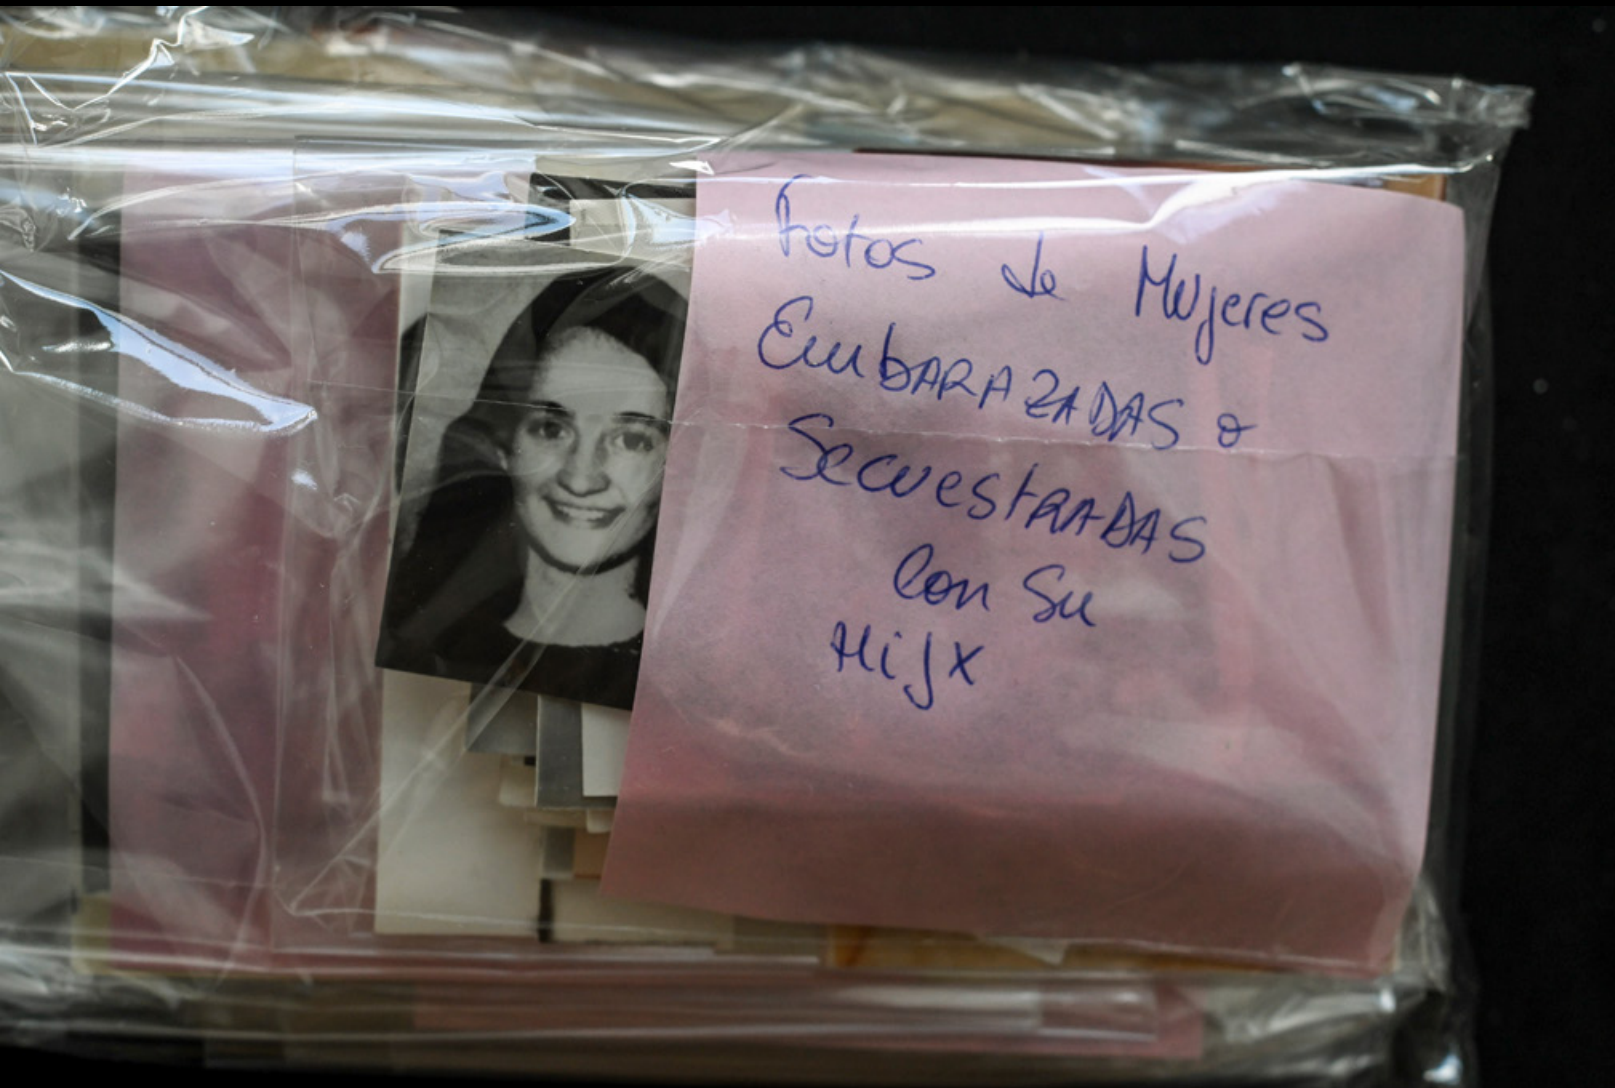 Fotos de Mujeres
EmbARAZADAS o
SecuestRADAS
Con Su
Hijx